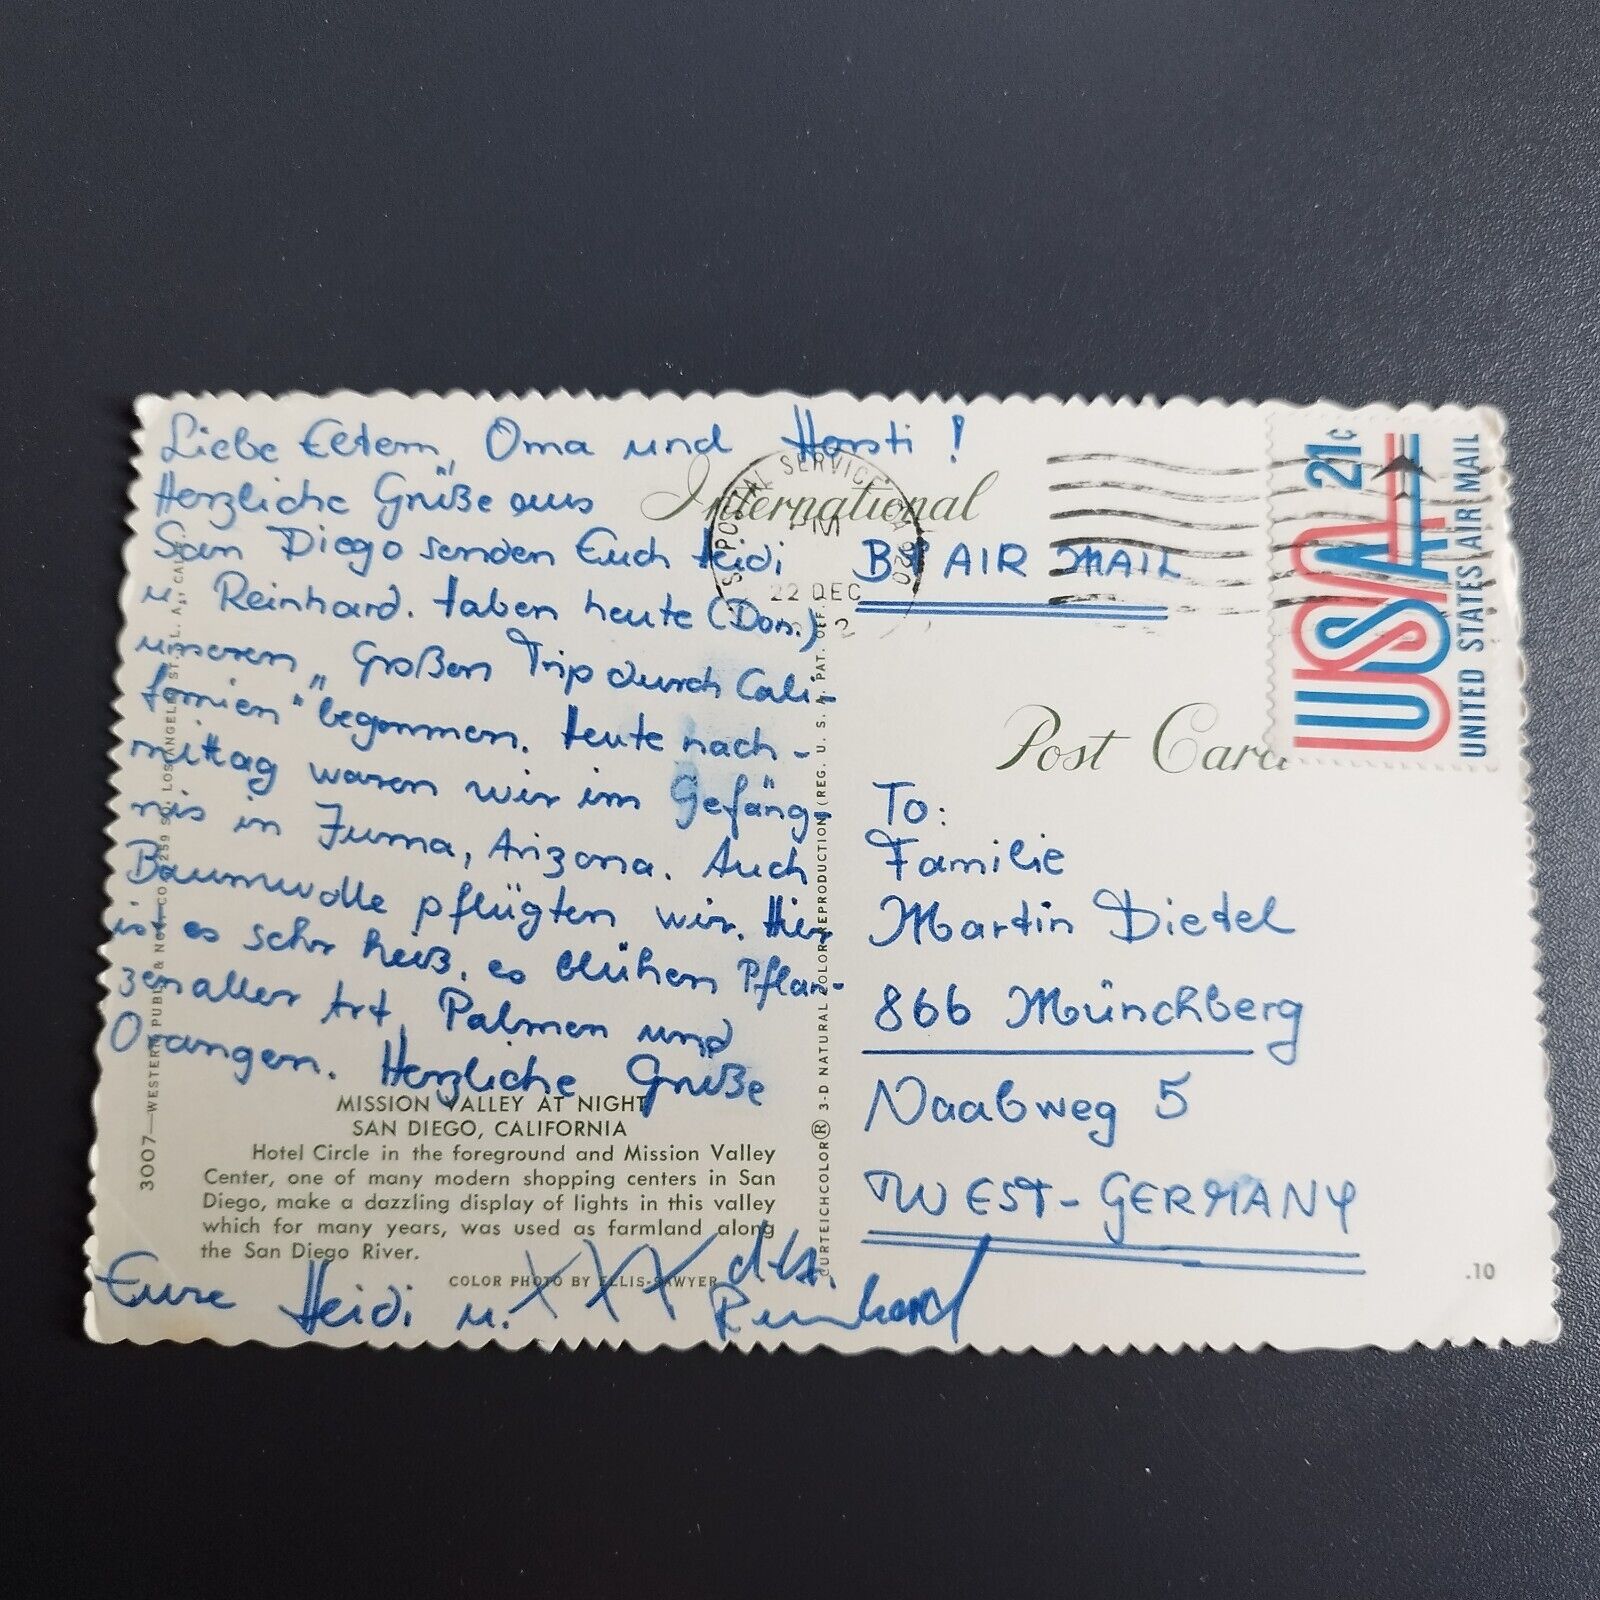 Liebe Eltern, Oma und Horsti!
Herzliche Grüße aus
San Diego senden Euch Heidi
u. Reinhard. Haben heute (Don.)
unseren "Großen Trip durch Cali-
fornien" begonnen. Heute nach-
mittag waren wir im Gefäng-
nis in Yuma, Arizona. Auch
Baumwolle pflügten wir. Hier
ist es sehr heiß, es blühen Pflan-
zen aller Art, Palmen und
Orangen. Herzliche Grüße
MISSION VALLEY AT NIGHT
SAN DIEGO, CALIFORNIA
Hotel Circle in the foreground and Mission Valley
Center, one of many modern shopping centers in San
Diego, make a dazzling display of lights in this valley
which for many years, was used as farmland along
the San Diego River.
COLOR PHOTO BY ELLIS-SAWYER
Eure Heidi u. XXX
Reinhard
3007—WESTERN PUBL. & NOV. CO. 259 SO. LOS ANGELES ST. L. A., CALIF.
CURTEICHCOLOR® 3-D NATURAL COLOR REPRODUCTION (REG. U. S. A. PAT. OFF.)
International
Post Card
POSTAL SERVICE
PM
22 DEC
BY AIR MAIL
USA 21c
UNITED STATES AIR MAIL
To:
Familie
Martin Dietel
866 Münchberg
Naabweg 5
WEST-GERMANY
.10